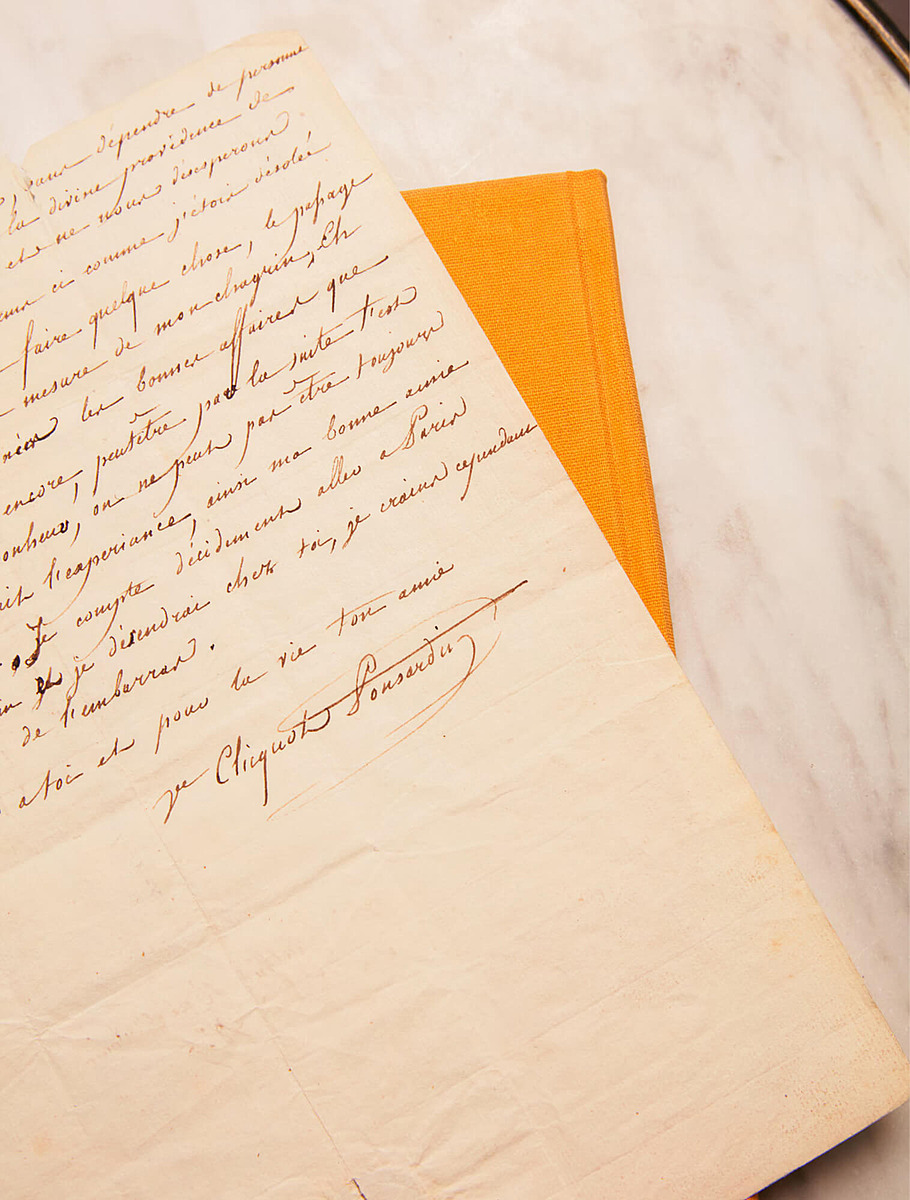 , sans dépendre de personne
la divine providence de
et ne nous désesperons
ci comme j'étois désolée
faire quelque chose, le passage
mesure de mon chagrin, Eh
les bonnes affaires que
encore, peutêtre par la suite t'est
onheur, on ne peut pas être toujours
ait l'experiance, ainsi ma bonne amie
, Je compte décidement aller a Paris
et je désendrai chez toi, je crains cependant
de l'embarras.
a toi et pour la vie ton amie
ve Clicquot Ponsardin